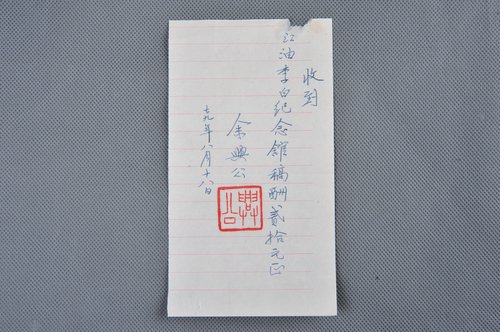 收到
江油李白纪念館稿酬貳拾元正
余興公
七九年八月十八日
興公